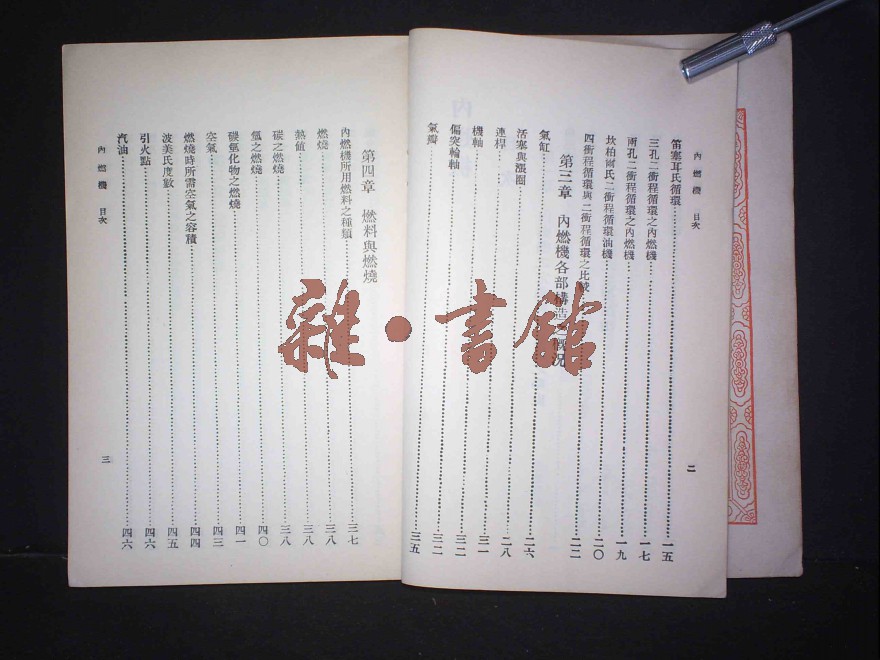 內燃機 目次
二
笛塞耳氏循環 一五
三孔二衝程循環之內燃機 一七
兩孔二衝程循環之內燃機 一九
坎柏爾氏二衝程循環油機 二〇
四衝程循環與二衝程循環之比較 二二
第三章 內燃機各部構造之概況
氣缸 二六
活塞與漲圈 二八
連桿 三一
機軸 三二
偏突輪軸 三二
氣瓣 三五
第四章 燃料與燃燒
內燃機所用燃料之種類 三七
燃燒 三八
熱值 三八
碳之燃燒 三八
氫之燃燒 四〇
碳氫化物之燃燒 四一
空氣 四三
燃燒時所需空氣之容積 四四
波美氏度數 四五
引火點 四六
汽油 四六
內燃機 目次
三
雜·書館